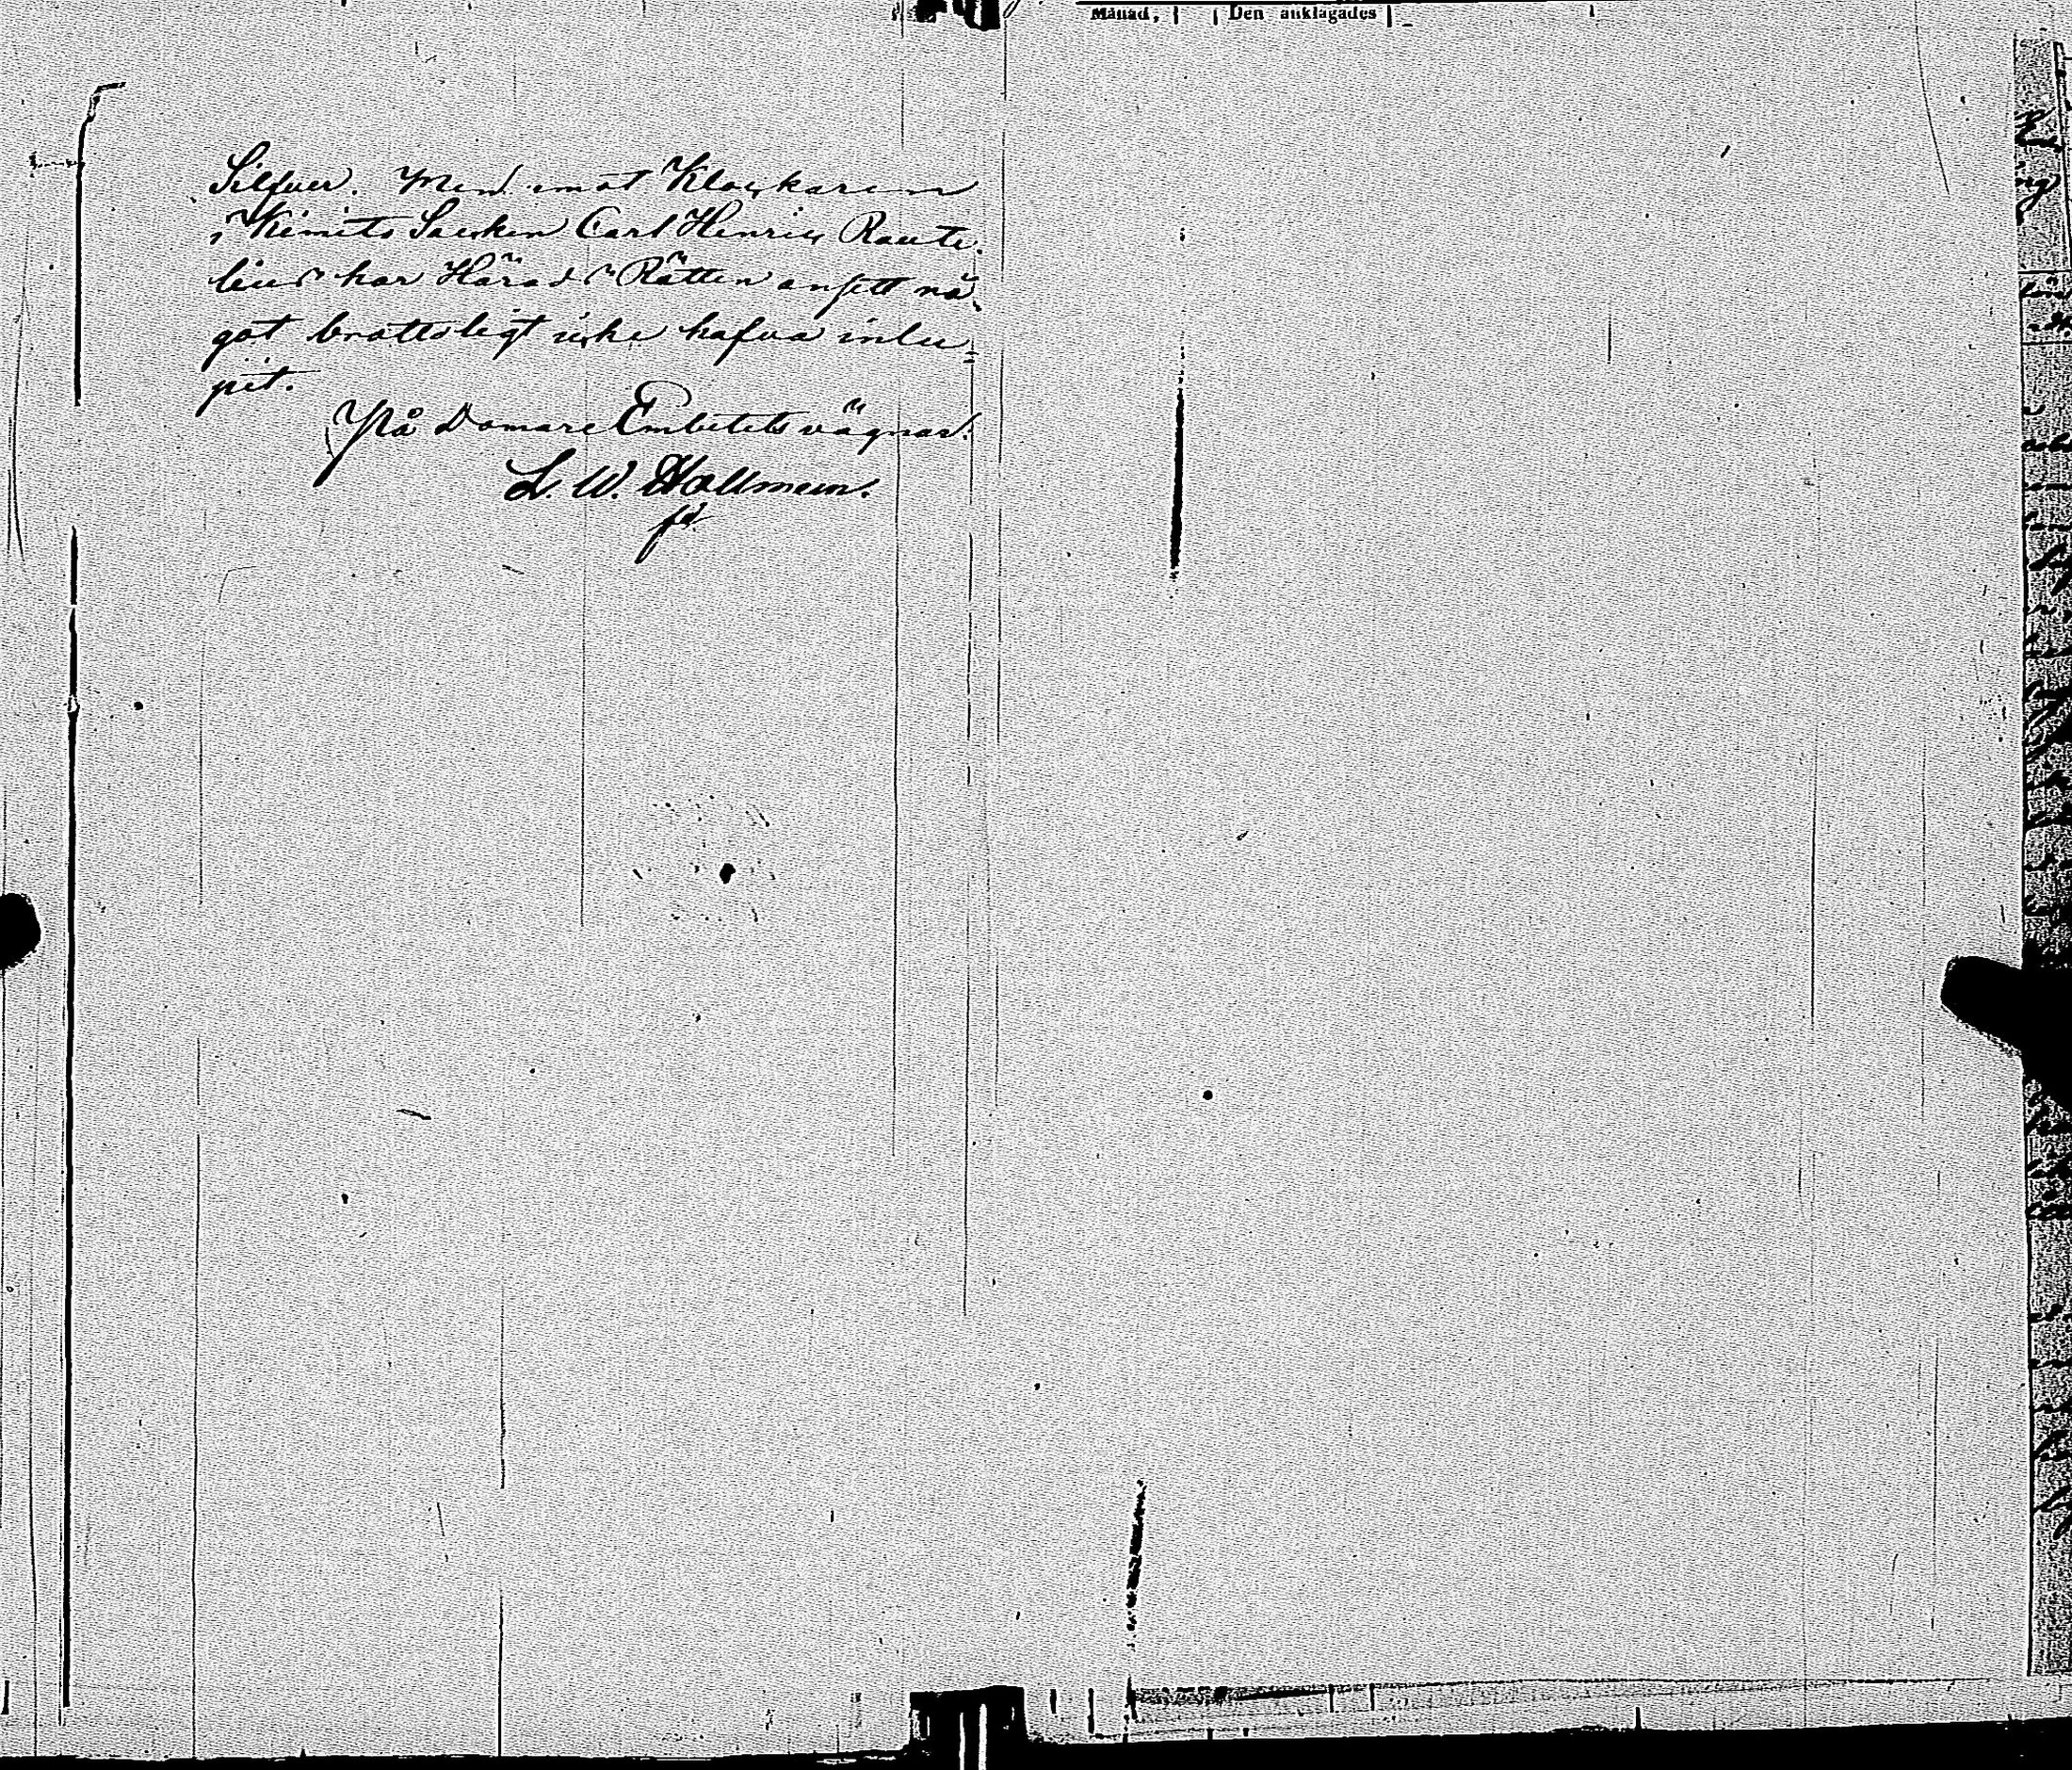 Månad, Den anklagades
Silfver. Men emot Klockaren
i Kimito Socken Carl Henric Raute-
lius har Härads Rätten ansett nå-
got brottsligt icke hafva inlu-
pit.
På Domare Embetets vägnar:
L. W. Hallmén.